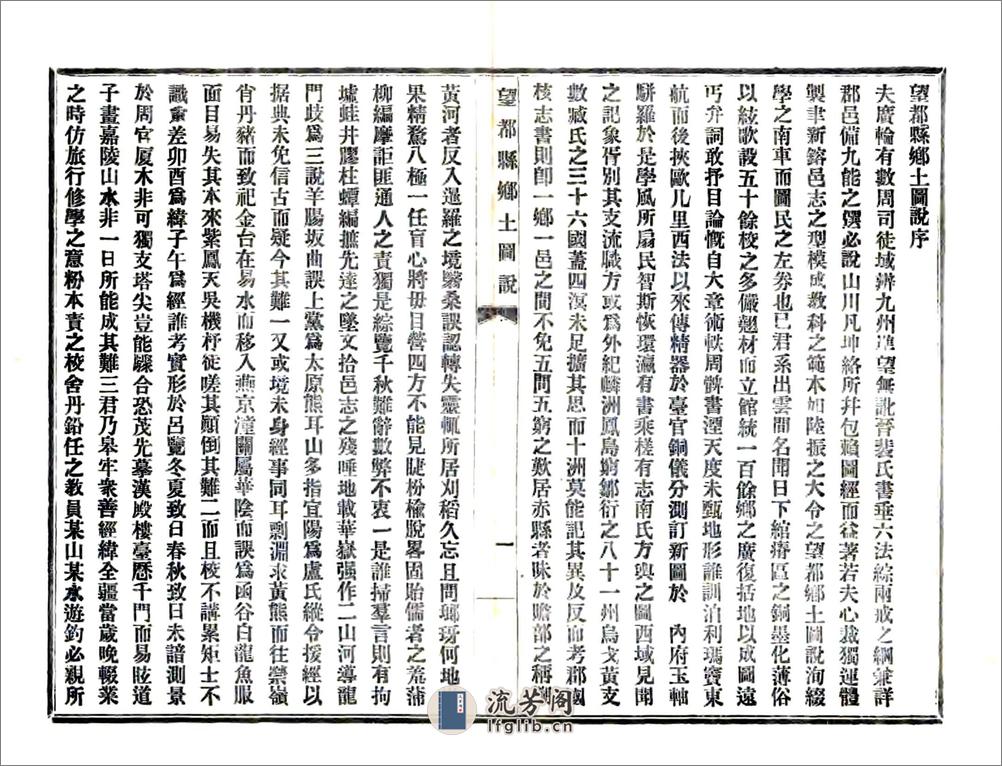 望都縣鄉土圖說序
夫廣輪有數周司徒域辨九州道望無訛晉裴氏書垂六法綜兩戒之綱兼詳
郡邑備九能之選必說山川凡坤絡所幷包賴圖經而益著若夫心裁獨運體
製聿新鎔邑志之型模成敎科之範本如陸振之大令之望都鄉土圖說洵綴
學之南車而圖民之左券也已君系出雲間名聞日下綰瘠區之銅墨化薄俗
以絃歌設五十餘校之多儼翹材而立館統一百餘鄉之廣復括地以成圖遠
丐弁詞敢抒目論慨自大章術軼周髀書湮天度未甄地形誰訓泊利瑪竇東
航而後挾歐几里西法以來傳精器於臺官銅儀分測訂新圖於　內府玉軸
駢羅於是學風所扇民智斯恢環瀛有書乘槎有志南氏方輿之圖西域見聞
之記象胥別其支流職方或爲外紀麟洲鳳島窮鄒衍之八十一州烏戈黃支
數臧氏之三十六國蓋四溟未足擴其思而十洲莫能記其異及反而考郡國
核志書則卽一鄉一邑之間不免五間五窮之歎居赤縣者昧於贍部之稱溯
望都縣鄉土圖說
一
黃河者反入暹羅之境翳桑誤認轉失靈輒所居刈稻久忘且問瑯玡何地
果精騖八極一任盲心將毋目營四方不能見睫枌楡脫畧固貽儒者之羞蒲
柳編摩詎匪通人之責獨是綜覽千秋難辭數弊不衷一是誰掃羣言則有拘
墟蛙井膠柱蟫編摭先達之墜文拾邑志之殘唾地載華嶽强作二山河導龍
門歧爲三說羊腸坂曲誤上黨爲太原熊耳山多指宜陽爲盧氏縱令援經以
据典未免信古而疑今其難一又或境未身經事同耳剽淵求黃熊而往禜嶺
肖丹豬而致祀金台在易水而移入燕京潼關屬華陰而誤爲函谷白龍魚服
面目易失其本來紫鳳天吳機杼徒嗟其顚倒其難二而且校不講累矩士不
識𧗾差卯酉爲緯子午爲經誰考實形於呂覽冬夏致日春秋致日未諳測景
於周官厦木非可獨支塔尖豈能驟合恐茂先摹漢殿樓臺厯千門而易眩道
子畫嘉陵山水非一日所能成其難三君乃皋牢衆善經緯全疆當歲晚輟業
之時仿旅行修學之意粉本責之校舍丹鉛任之敎員某山某水遊釣必親所
流芳阁
lfglib.cn